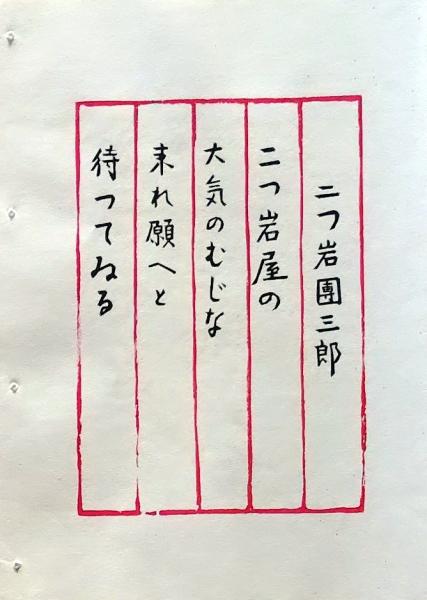 二つ岩團三郎
二つ岩屋の
大気のむじな
来れ願へと
待つてゐる